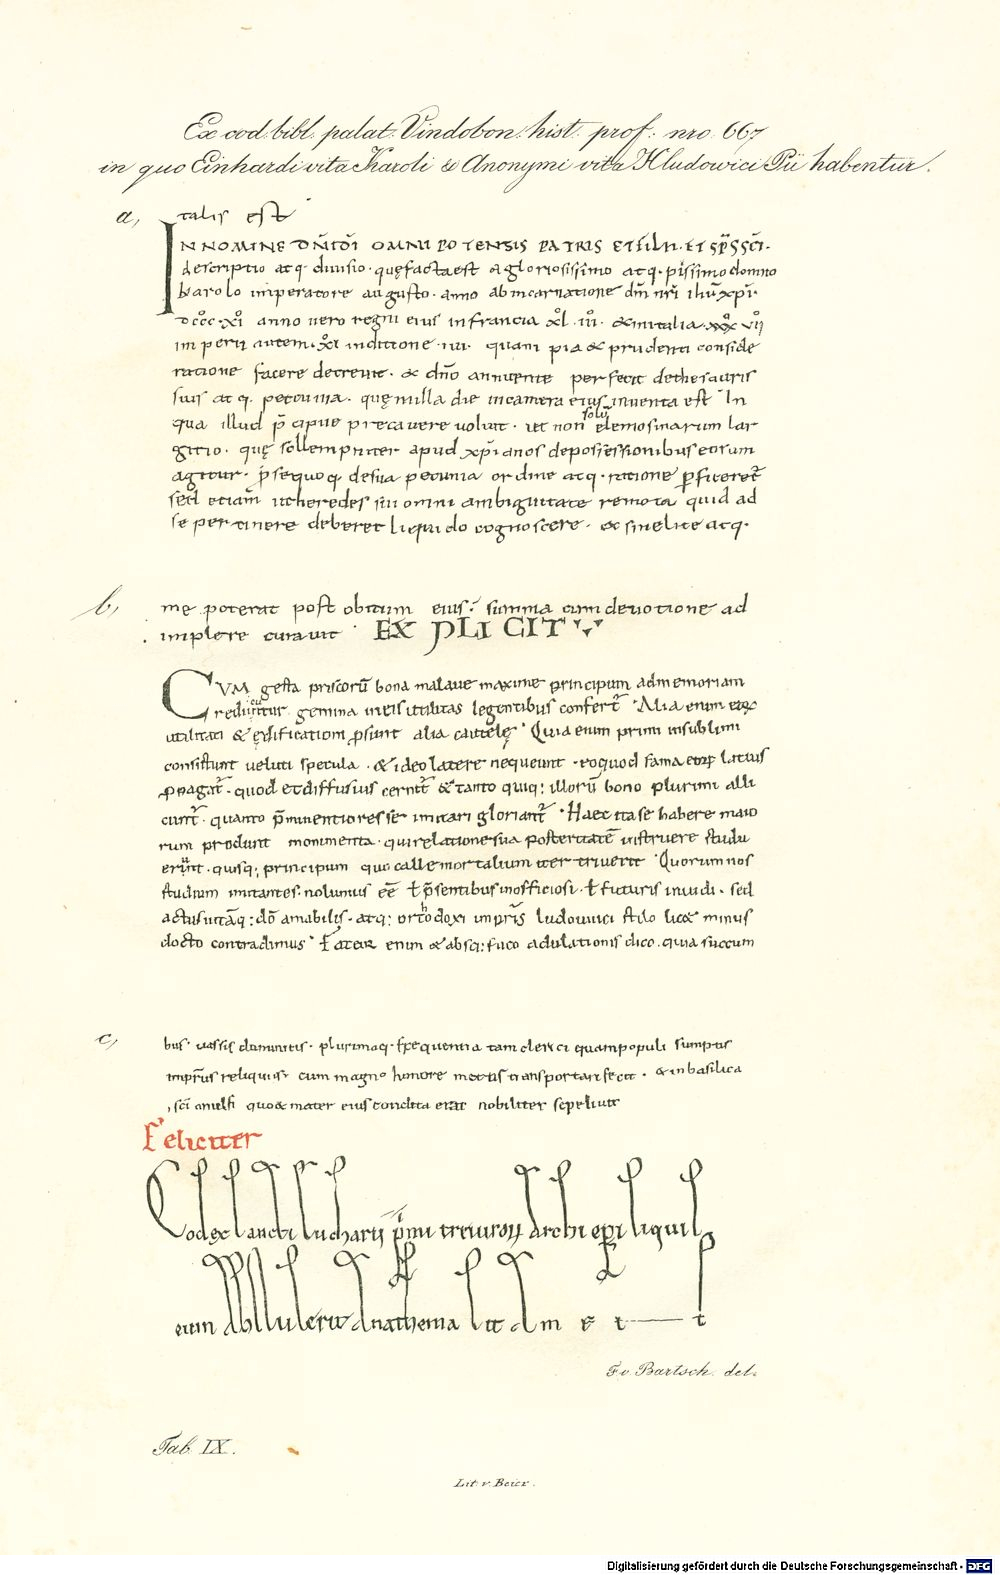 Ex cod. bibl. palat. Vindobon. hist. prof. nro 667
in quo Einhardi vita Karoli & Anonymi vita Hludowici Pii habentur.
a, talis est
IN NOMINE DNI DI OMNIPOTENSIS PATRIS ET FILII ET SPS SCI.
descriptio atq. divisio. quę facta est a gloriosissimo atq. piissimo domno
karolo imperatore augusto. anno ab incarnatione dni nri ihu xpi.
dccc. xi anno vero regni eius in francia xl. iii. & in italia. xxx vii
imperii autem. xi indictione. iiii. quam pia & prudenti conside
racione facere decreuit. & dno annuente perfecit de thesauris
suis atq. pecunia. quę in illa die in camera eius inuenta est. In
qua illud p cipue precauere uoluit. ut non solu elemosinarum lar
gitio. quę sollempniter apud xpianos de possessionibus eorum
agitur. p se quoq. de sua pecunia ordine atq. ratione pficeret
sed etiam ut heredes sui omni ambiguitate remota quid ad
se pertinere deberet liquido cognoscere. & sine lite atq.
b, me poterat post obitum eius. summa cum deuotione ad
implere curauit. EXPLICIT
CVM gesta priscoru bona malaue maxime principum ad memoriam
reducuntur. gemina in eis utilitas legentibus confert. Alia enim eor
utilitati & ędificationi psunt alia cautelę. Quia enim primi in sublimi
consistunt ueluti specula. & ideo latere nequeunt. eo quod fama eor latius
ppagat. quod et diffusius cernit & tanto quiq; illoru bono plurimi alli
ciunt. quanto pminentiores se imitari gloriant. Haec ita se habere maio
rum produnt monimenta. qui relatione sua posteritate instruere studu
erunt. quisq; principum quo calle mortalium iter triuerit. Quorum nos
studium imitantes nolumus ee t psentibus inofficiosi. t futuris inuidi. sed
actus uitaq; do amabilis. atq; orthodoxi impris ludouuici stilo lic& minus
docto contradimus. Fateor enim & absq; fuco adulationis dico. quia succum
c, bus. uassis dominicis. plurimaq. frequentia tam cleri ci quam populi sumptis
impris reliquiis. cum magno honore mettis transportari fecit. & in basilica
sci arnulfi quo & mater eius condita erat nobiliter sepeliuit
Feliciter
Codex sancti eucharii pmi treuiror archi epi siquis
eum abstulerit anathema sit am e n
F. v. Bartsch. del.
Tab. IX.
Lit. v. Beier.
Digitalisierung gefördert durch die Deutsche Forschungsgemeinschaft - DFG